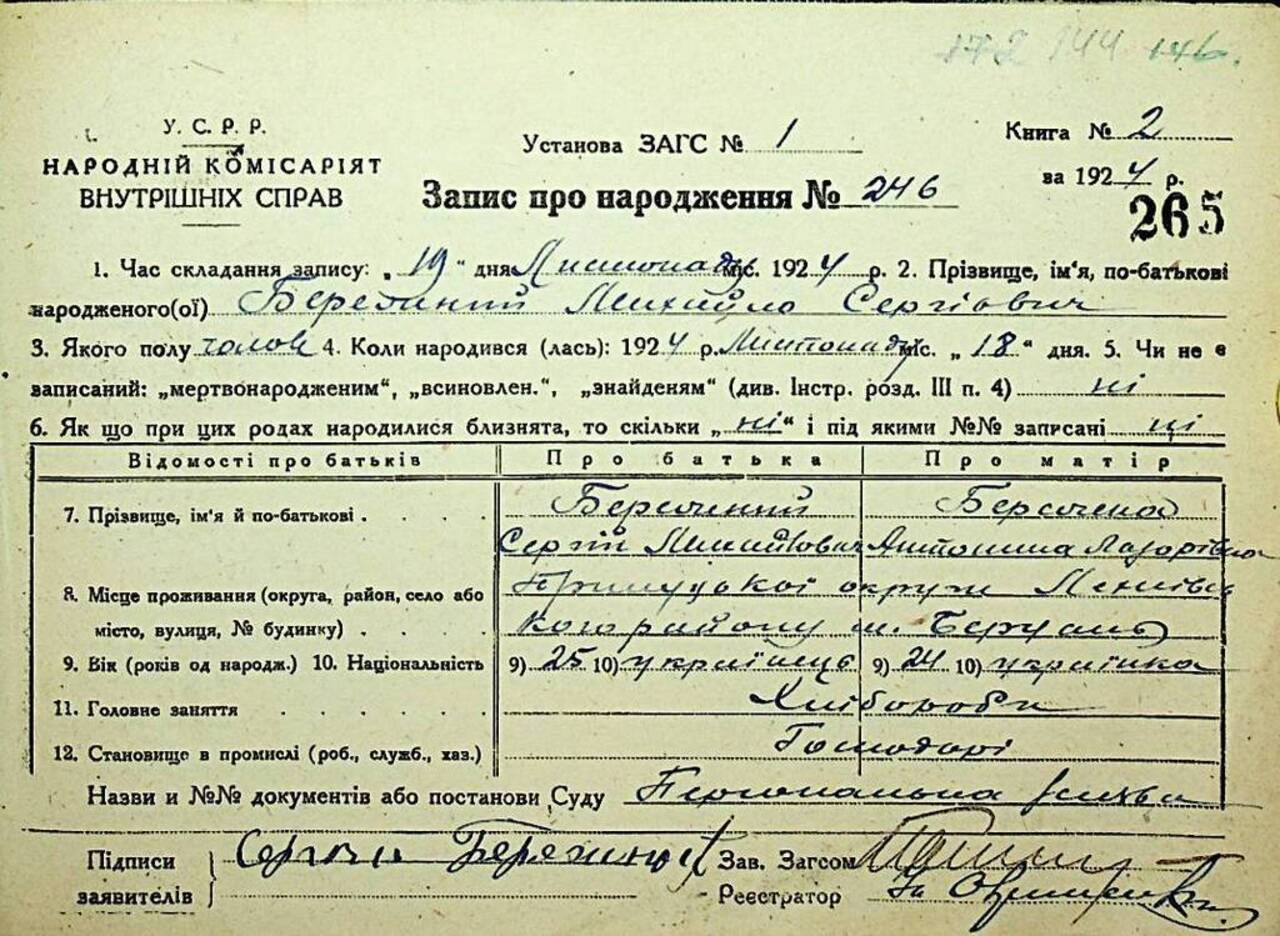 172 144 146.
У. С. Р. Р.
НАРОДНІЙ КОМІСАРІЯТ
ВНУТРІШНІХ СПРАВ
Установа ЗАГС № 1
Запис про народження № 246
Книга № 2
за 1924 р.
265
1. Час складання запису: „19" дня Листопаду міс. 1924 р. 2. Прізвище, ім'я, по-батькові
народженого(ої) Михайло Сергіович
3. Якого полу чолов 4. Коли народився (лась): 1924 р. Листопаду міс. „18" дня. 5. Чи не є
записаний: „мертвонародженим", „всиновлен.", „знайденям" (див. Інстр. розд. III п. 4) ні
6. Як що при цих родах народилися близнята, то скільки „ні" і під якими №№ записані ні
Відомості про батьків Про батька Про матір
7. Прізвище, ім'я й по-батькові . . . .
Сергій Антонина Лазорівна
8. Місце проживання (округа, район, село або Прилуцької округи
місто, вулиця, № будинку) . . . . кого району
9. Вік (років од народж.) 10. Національність 9) 25 10) українець 9) 24 10) українка
11. Головне заняття . . . . . Хлібороби
12. Становище в промислі (роб., служб., хаз.) Господарі
Назви и №№ документів або постанови Суду Персональна
Підписи
заявителів
Зав. Загсом
Реєстратор